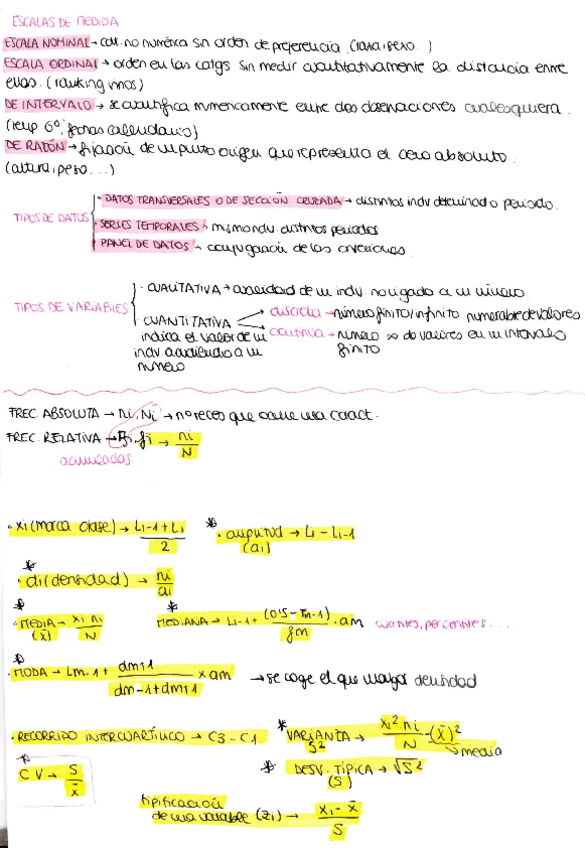 ESCALAS DE MEDIDA
ESCALA NOMINAL → cat. no numérica sin orden de preferencia. (raza, peso...)
ESCALA ORDINAL → orden en las catgs sin medir cuantitativamente la distancia entre
ellas. (ranking vinos)
DE INTERVALO → se cuantifica numericamente entre dos observaciones cualesquiera.
(temp 6º, fechas calendario)
DE RAZÓN → fijación de un punto origen que representa el cero absoluto.
(altura, peso...)
TIPOS DE DATOS
· DATOS TRANSVERSALES O DE SECCIÓN CRUZADA → distintos indv determinado periodo.
· SERIES TEMPORALES → mismo indv. distintos periodos
· PANEL DE DATOS → conjugación de las anteriores.
TIPOS DE VARIABLES
· CUALITATIVA → cualidad de un indv. no ligado a un número
· CUANTITATIVA
indica el valor de un
indv acudiendo a un
número
discreta → número finito/infinito numerable de valores
continua → número ∞ de valores en un intervalo
finito
FREC. ABSOLUTA → ni, Ni → nº veces que ocurre una caract.
FREC. RELATIVA → Fi, fi → ni/N
acumuladas
· xi (marca clase) → Li-1 + Li / 2
* · amplitud → Li - Li-1
(ai)
* · di (densidad) → ni/ai
* · MEDIA → xi ni / N
(x̄)
* MEDIANA → Li-1 + (0'5 - Fm-1) / fm · am
cuartiles, percentiles....
* · MODA → Lm-1 + dm+1 / dm-1 + dm+1 × am → se coge el que mayor densidad
· RECORRIDO INTERCUARTÍLICO → C3 - C1
* VARIANZA → xi² ni / N - (x̄)²
S²
→ media
* CV → S / x̄
* DESV. TÍPICA → √S²
(S)
tipificación
de una variable (zi) → xi - x̄ / S